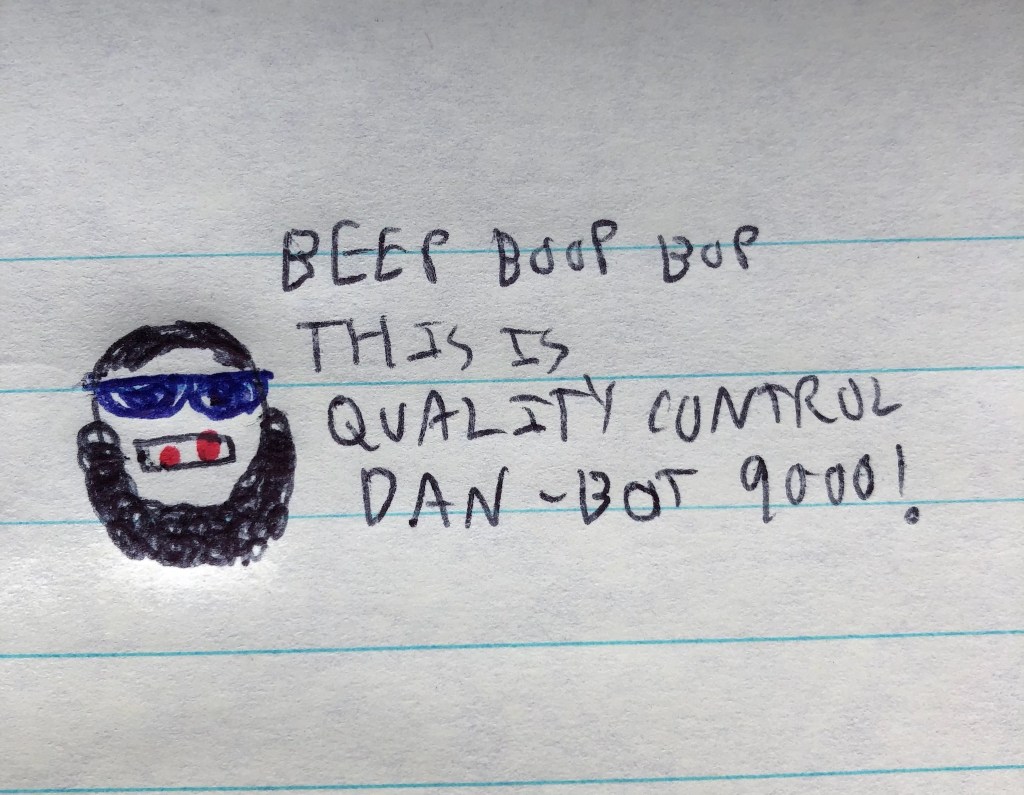 BEEP BOOP BOP
THIS IS
QUALITY CONTROL
DAN-BOT 9000!